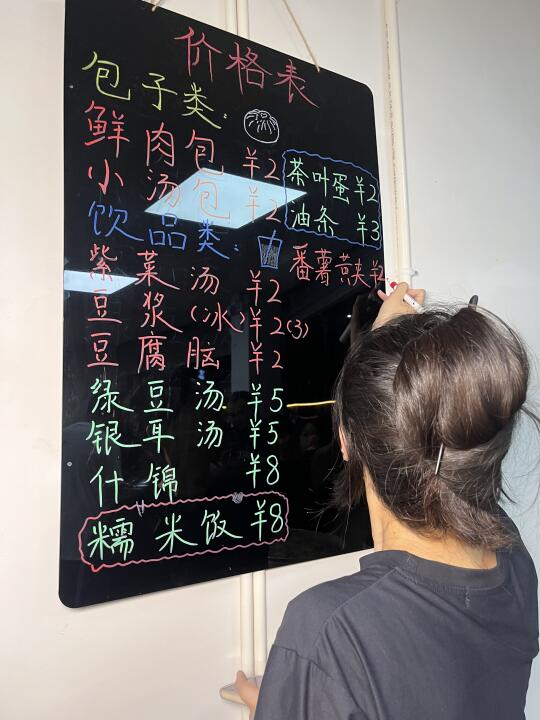 价格表
包子类:
鲜肉包 ¥2
小汤包 ¥2
茶叶蛋 ¥2
油条 ¥3
饮品类:
番薯黄夹 ¥2
紫菜汤 ¥2
豆浆(冰) ¥2(3)
豆腐脑 ¥2
绿豆汤 ¥5
银耳汤 ¥5
什锦 ¥8
糯米饭 ¥8